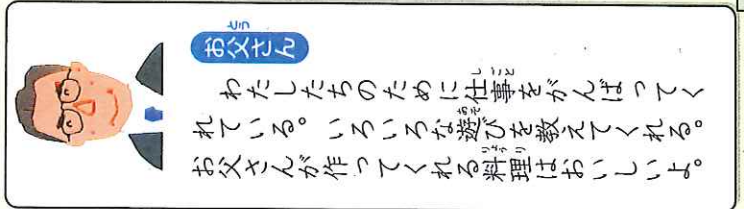 お父さん
わたしたちのために仕事をがんばってく
れている。いろいろな遊びを教えてくれる。
お父さんが作ってくれる料理はおいしいよ。